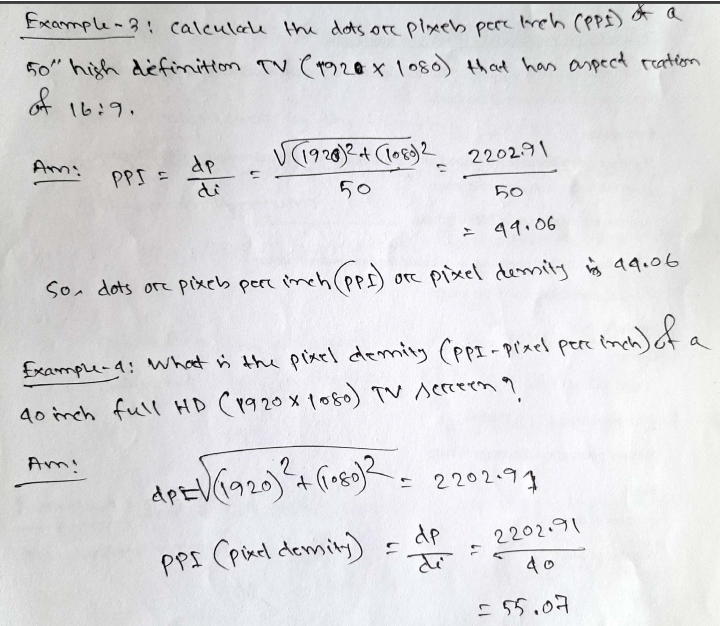 Example-3: Calculate the dots or pixels per inch (PPI) of a
50" high definition TV (1920 x 1080) that has aspect ration
of 16:9.
Ans: PPI = dp/di = √(1920)² + (1080)² / 50 = 2202.91 / 50
= 44.06
So, dots or pixels per inch (PPI) or pixel density is 44.06
Example-4: What is the pixel density (PPI-pixel per inch) of a
40 inch full HD (1920 x 1080) TV screen?
Ans:
dp = √(1920)² + (1080)² = 2202.91
PPI (pixel density) = dp/di = 2202.91 / 40
= 55.07